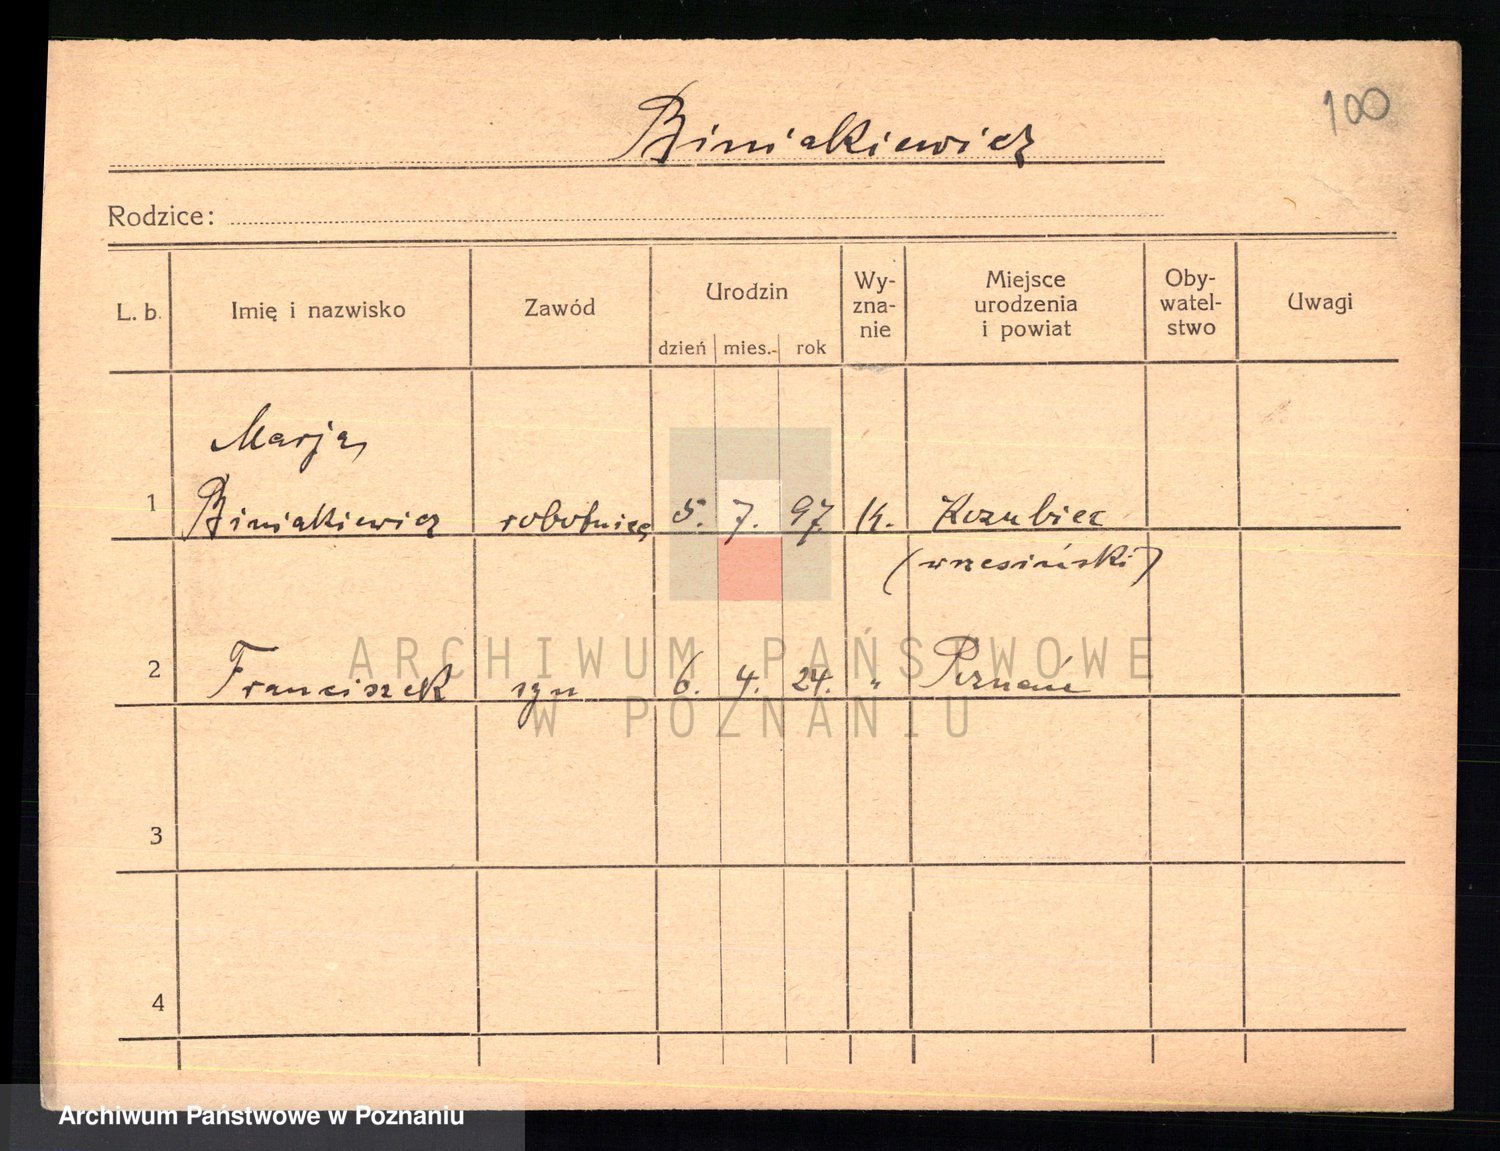 Biniakiewicz
100
Rodzice:
L. b. Imię i nazwisko Zawód Urodzin dzień mies. rok Wy-zna-nie Miejsce urodzenia i powiat Oby-watel-stwo Uwagi
Marja
1 Biniakiewicz robotnica 5. 7. 97. K. Kozubiec
(wrzesiński)
2 Franciszek syn 6. 4. 24. " Poznań
3
4
ARCHIWUM PAŃSTWOWE
W POZNANIU
Archiwum Państwowe w Poznaniu